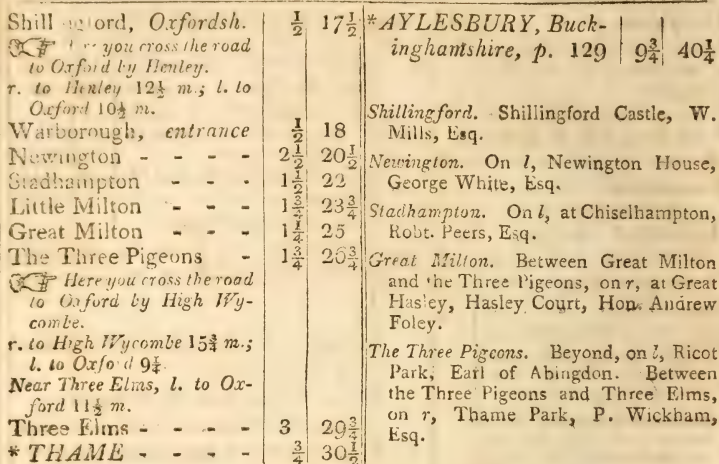 Shillingford, Oxfordsh. ½ 17½
☞ Here you cross the road
to Oxford by Henley.
r. to Henley 12½ m.; l. to
Oxford 10½ m.
Warborough, entrance ½ 18
Newington - - - 2½ 20½
Stadhampton - - - 1½ 22
Little Milton - - - 1¾ 23¾
Great Milton - - - 1¼ 25
The Three Pigeons - 1¾ 26¾
☞ Here you cross the road
to Oxford by High Wy-
combe.
r. to High Wycombe 15¾ m.;
l. to Oxford 9¼.
Near Three Elms, l. to Ox-
ford 11½ m.
Three Elms - - - - 3 29¾
* THAME - - - - ¾ 30½
* AYLESBURY, Buck-
inghamshire, p. 129 9¾ 40¼
Shillingford. Shillingford Castle, W.
Mills, Esq.
Newington. On l, Newington House,
George White, Esq.
Stadhampton. On l, at Chiselhampton,
Robt. Peers, Esq.
Great Milton. Between Great Milton
and the Three Pigeons, on r, at Great
Hasley, Hasley Court, Hon. Andrew
Foley.
The Three Pigeons. Beyond, on l, Ricot
Park, Earl of Abingdon. Between
the Three Pigeons and Three Elms,
on r, Thame Park, P. Wickham,
Esq.